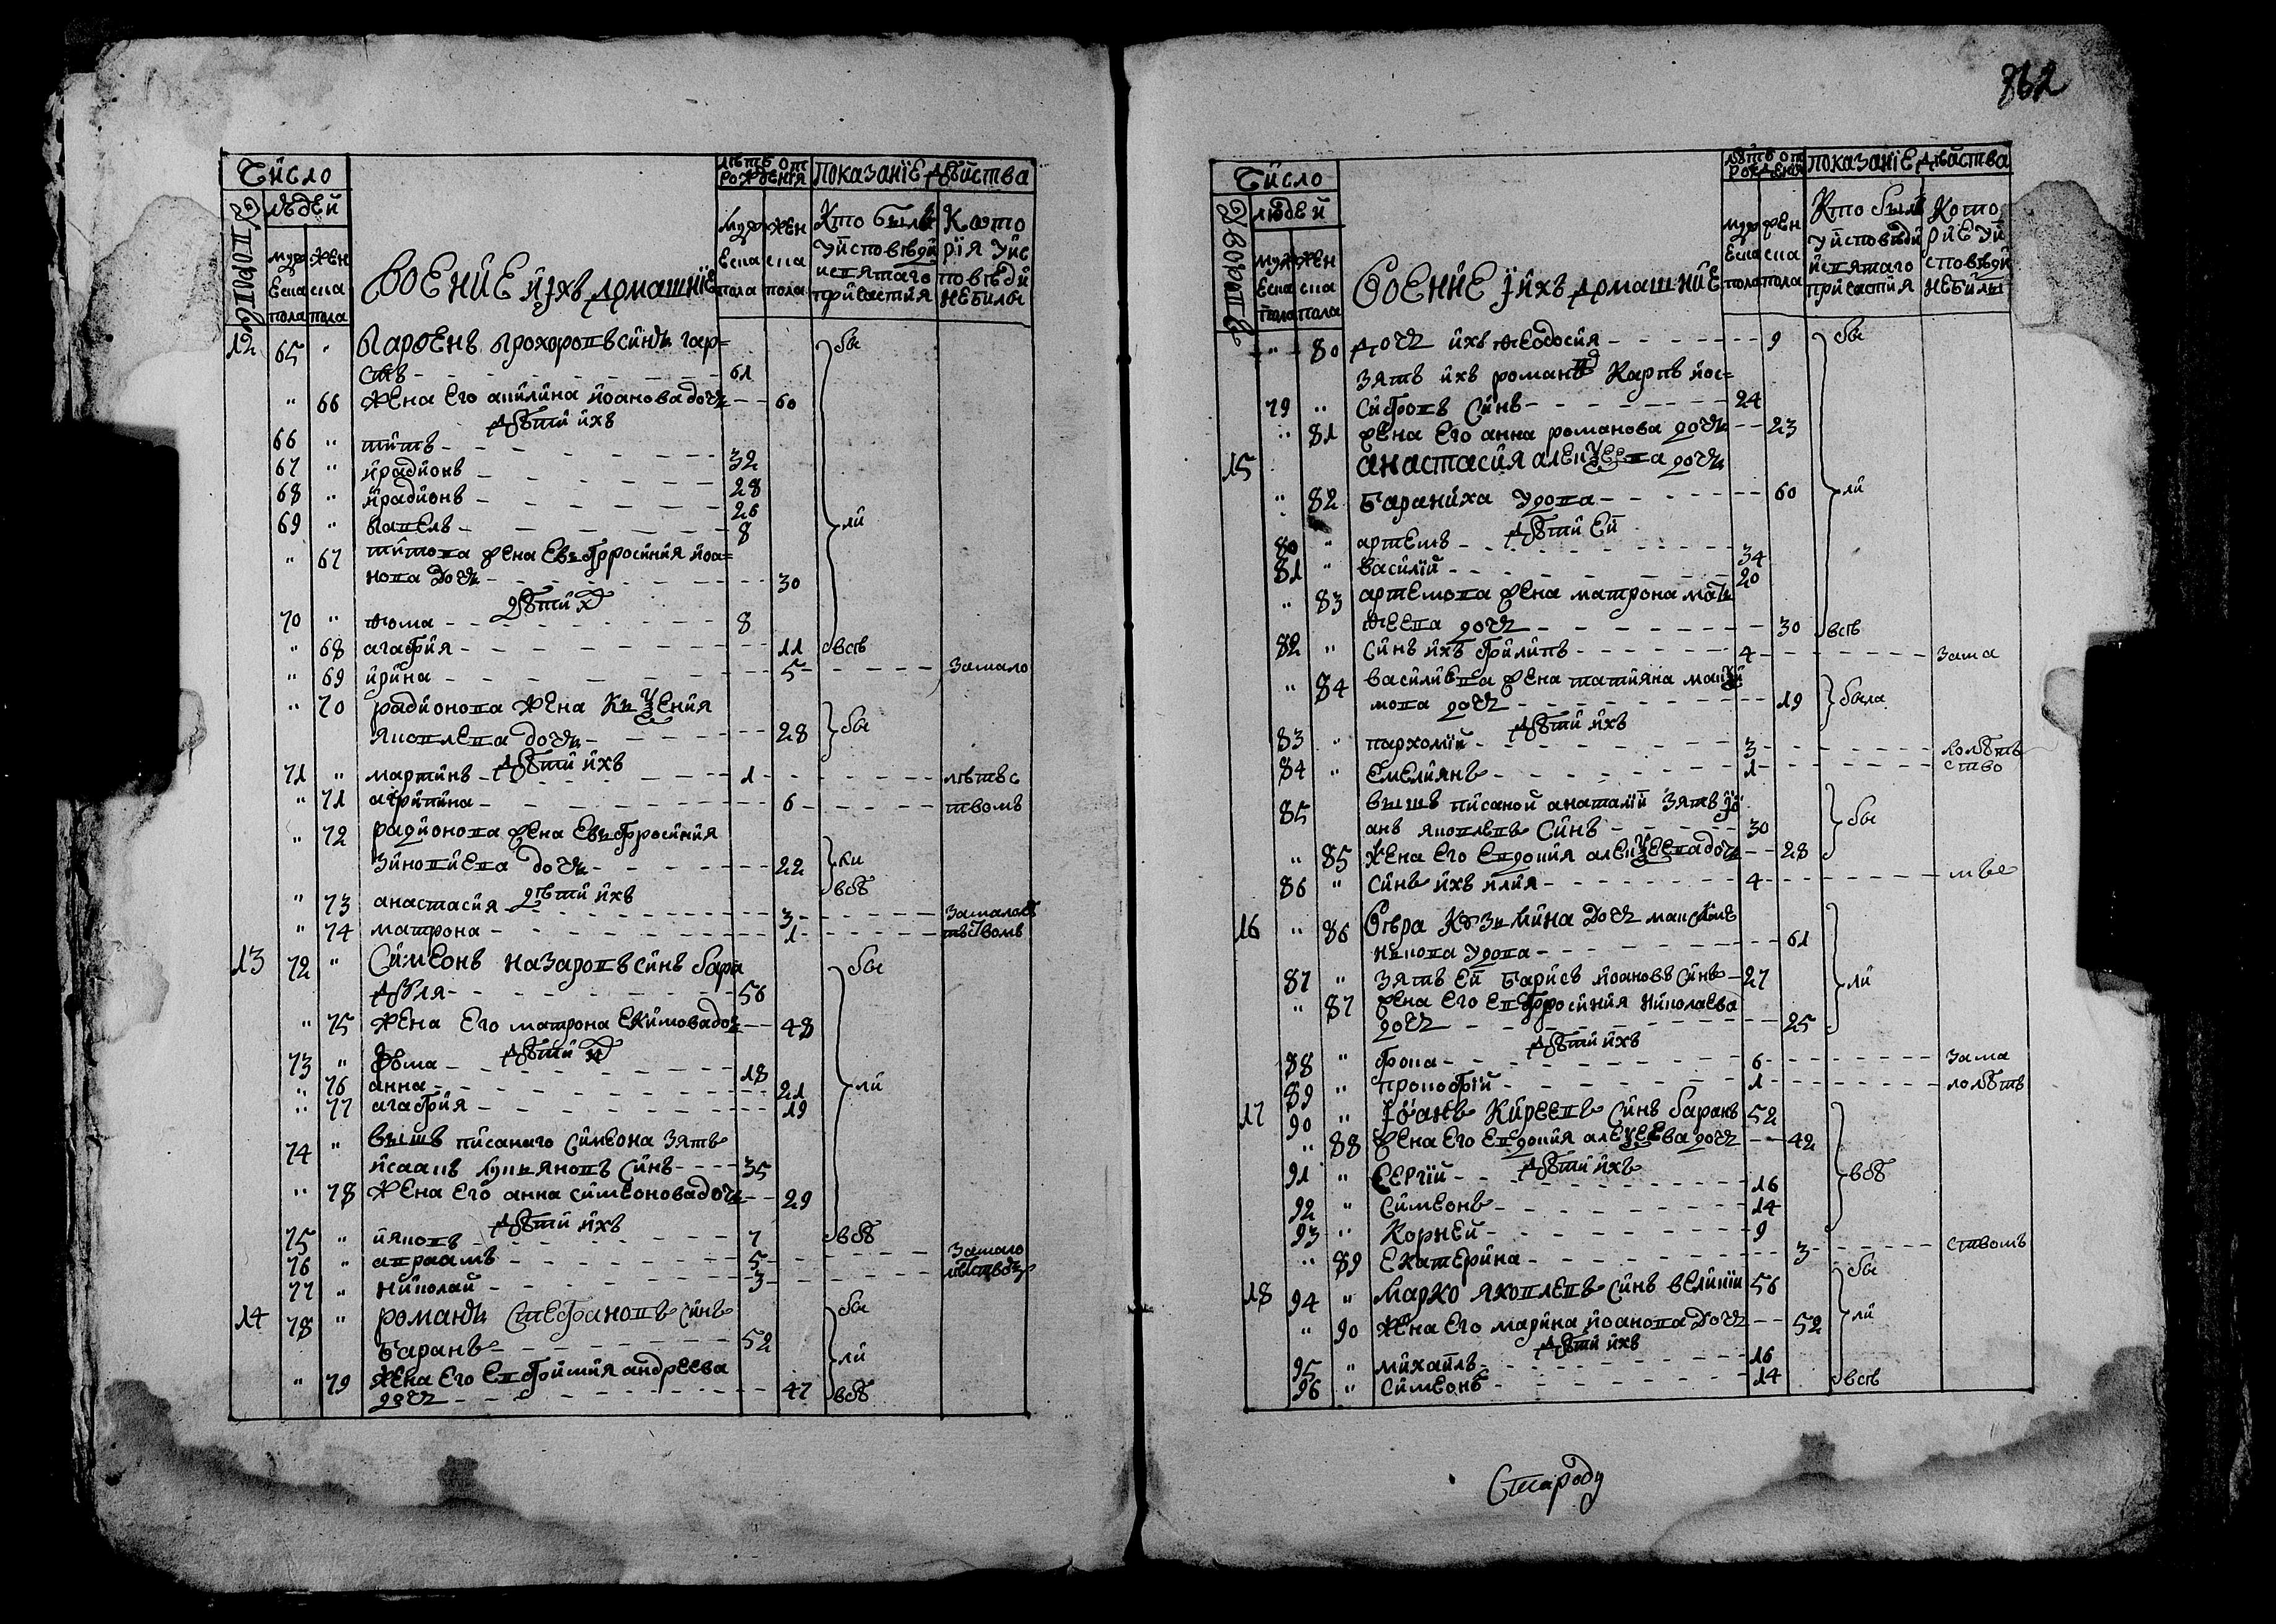 Число
людей
дворовъ
муж
еска
пола
жен
ска
пола
Военние и ихъ домашние
летъ от
рождения
муж
еска
пола
жен
ска
пола
показание действа
Кто былъ
у исповеди
и святаго
причастия
Кото
рия у ис
поведи
небилы
12 65 " Парфенъ Прохоровъ синъ гар=
61
" 66 жена его акилина иоанова дочь - - 60
дѣти ихъ
66 " титъ - - - 32
67 " ирадионъ - - - 28
68 " ирадионъ - - - 26
69 " павелъ - - - 8
" 67 титова жена евъфросиния иоа=
нова дочь - - - 30
дѣти их
70 " фома - - - 8
" 68 агафия - - - 11
" 69 ирина - - - 5 - - - замало
" 70 радионова жена къксения
яковлева дочь - - - 28 бы
дѣти ихъ
71 " мартинъ - - - 1 - - - лѣтъс
" 71 агрипина - - - 6 - - - твомъ
" 72 радионова жена евъфросиния
зиновиева дочь - - - 22 ли
дѣти ихъ
" 73 анастасия - - - 3 - - - замалолѣ
" 74 матрона - - - 1 - - - тъствомъ
13 72 " Симеонъ назаровъ синъ бара
56 бы
" 75 жена его матрона екимова доч - - 48
дѣти их
73 " фома - - - 18
" 76 анна - - - 21 ли
" 77 агафия - - - 19
74 " вышъ писаного симеона зять
исаакъ лукъяновъ синъ - - - 35
" 78 жена его анна симеонова дочь - - 29
дѣти ихъ
75 " ияковъ - - - 7 всѣ
76 " авраамъ - - - 5 - - - замало
77 " николай - - - 3 - - -
14 78 " романъ стефановъ синъ бы
баранъ - - - 52
ли
" 79 жена его евфимия андреева
дочь - - - 47 всѣ
862
Число
людей
дворовъ
муж
еска
пола
жен
ска
пола
Военние и ихъ домашние
летъ от
рождения
муж
еска
пола
жен
ска
пола
показание действа
Кто былъ
у исповеди
и святаго
причастия
Кото
рие у и
споведи
небилы
" 80 дочь ихъ феодосия - - - 9 бы
зять ихъ романъ карпъ иос=
79 " сифовъ синъ - - - 24
" 81 жена его анна романова дочь - - 23
15 анастасия алексеева дочь
" 82 бараниха удова - - - 60 ли
дѣти ей
80 " артемъ - - - 34
81 " василий - - - 20
" 83 артемова жена матрона мат
феева дочь - - - 30 всѣ
82 " синъ ихъ филипъ - - - 4 - - - зама
" 84 василиева жена татияна макси
мова дочь - - - 19 была
дѣти ихъ
83 " пархомий - - - 3 - - - лолѣтъ
84 " емелиянъ - - - 1 - - - ство
85 " вышъ писаной анаталий зять ио
анъ яковлевъ синъ - - - 30 бы
" 85 жена его евдокия алексеева дочь - - 28
86 " синъ ихъ илия - - - 4 - - -
16 " 86 Фекра Козьмина дочь
удова - - - 61
87 " зять ей барисъ иоановъ синъ - 27 ли
" 87 жена его евфросиния николаева
дочь - - - 25
дѣти ихъ
88 " фока - - - 6 - - - зама
89 " прокофий - - - 1 - - - лолѣтъ
17 90 " Иоанъ Киреевъ синъ баранъ 52
" 88 жена его евдокия алексеева дочь - - 42
дѣти ихъ
91 " Сергий - - - 16 всѣ
92 " Симеонъ - - - 14
93 " Корней - - - 9
" 89 Екатерина - - - 3 - - - ствомъ
18 94 " Марко яковлевъ синъ великий 56 бы
" 90 жена его марина иоанова дочь - - 52 ли
дѣти ихъ
95 " михаилъ - - - 16
96 " симеонъ - - - 14 всѣ
Староду